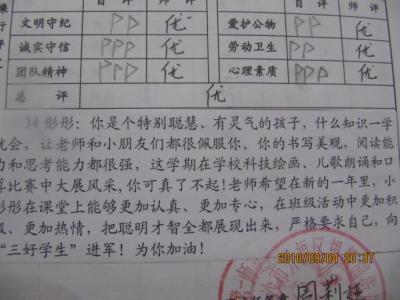 操 自 评 师 评 自 评 师 评
行 文明守纪 PP 优 爱护公物 PPP 优
评 诚实守信 PPP 优 劳动卫生 PPP 优
团队精神 PPP 优 心理素质 PPP 优
总 评 优
34 彤彤：你是个特别聪慧、有灵气的孩子，什么知识一学
就会，让老师和小朋友们都很佩服你。你的书写美观，阅读能
力和思考能力都很强，这学期在学校科技绘画、儿歌朗诵和口
算比赛中大展风采，你可真了不起！老师希望在新的一年里，小
彤彤在课堂上能够更加认真、更加专心，在班级活动中更加积
极、更加热情，把聪明才智全都展现出来，严格要求自己，向
“三好学生”进军！为你加油！
2010/09/04 20:37